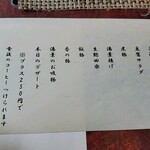 友禅サラダ
煮物
湯葉揚げ
生麩田楽
飯物
香の物
湯葉のお吸物
本日のデザート
※プラス250円で
食後のコーヒーつけられます